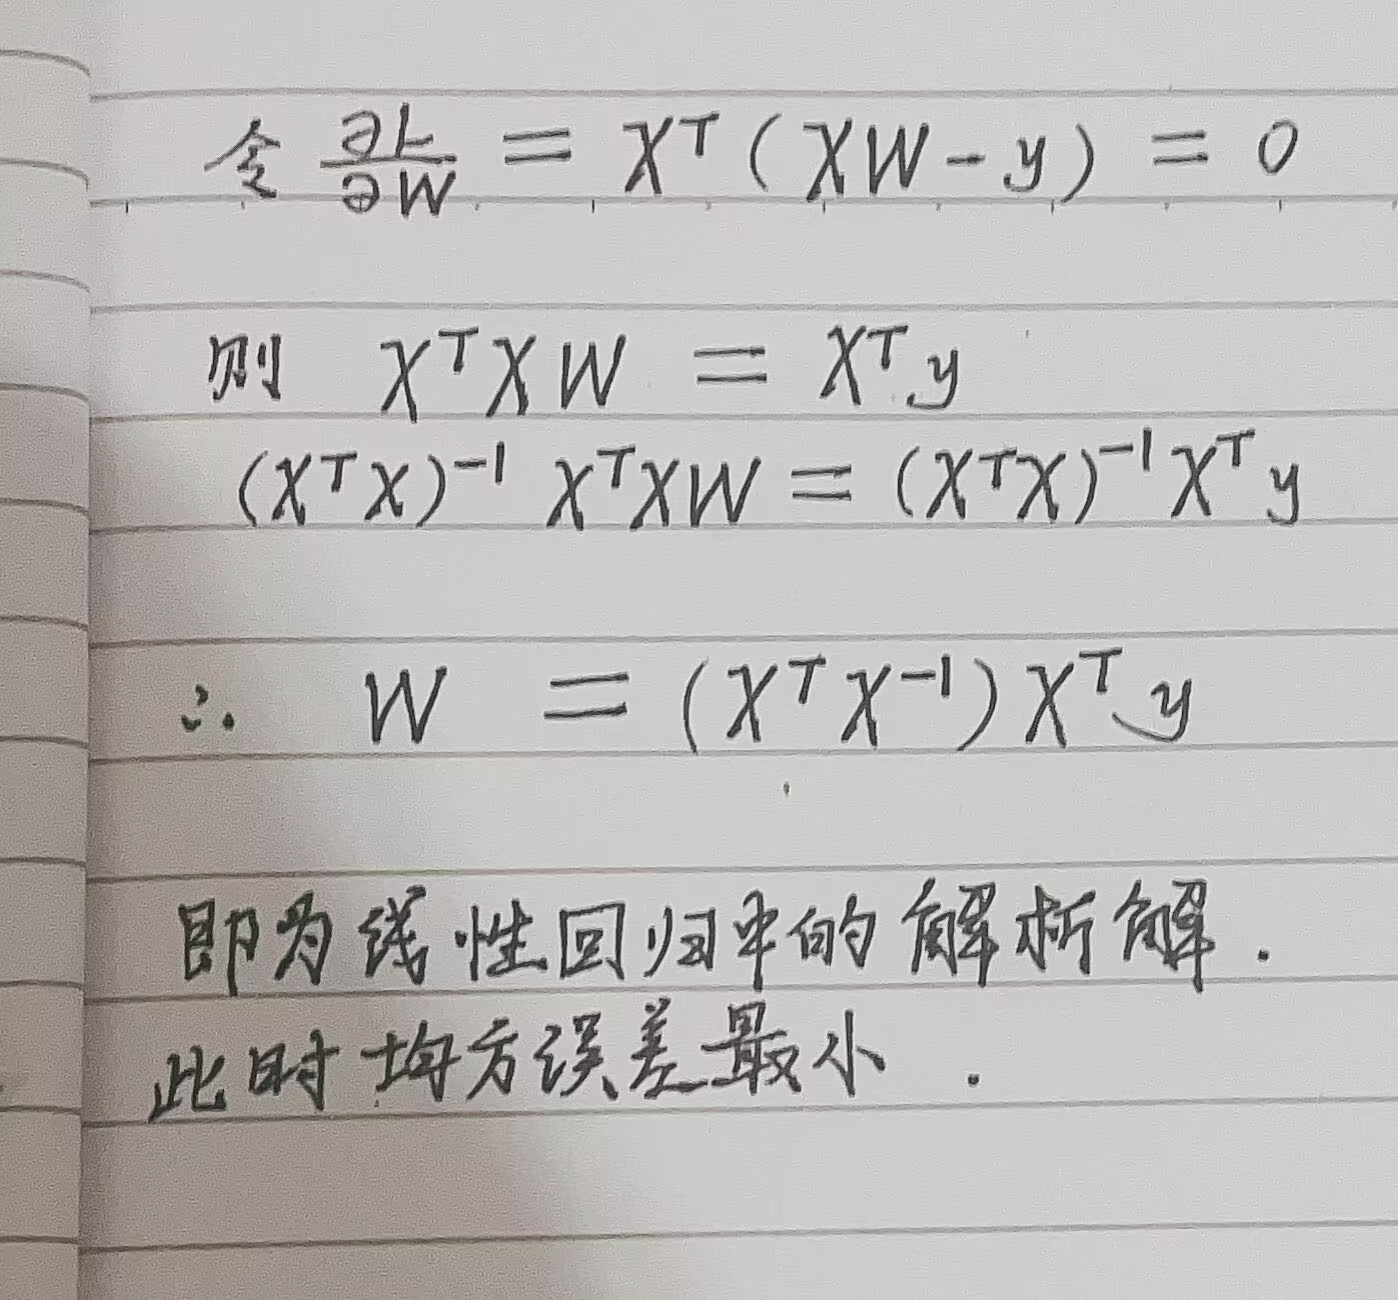 令 ∂L/∂W = Xᵀ(XW-y) = 0
则 XᵀXW = Xᵀy
(XᵀX)⁻¹ XᵀXW = (XᵀX)⁻¹Xᵀy
∴ W = (XᵀX⁻¹)Xᵀy
即为线性回归中的解析解.
此时均方误差最小.